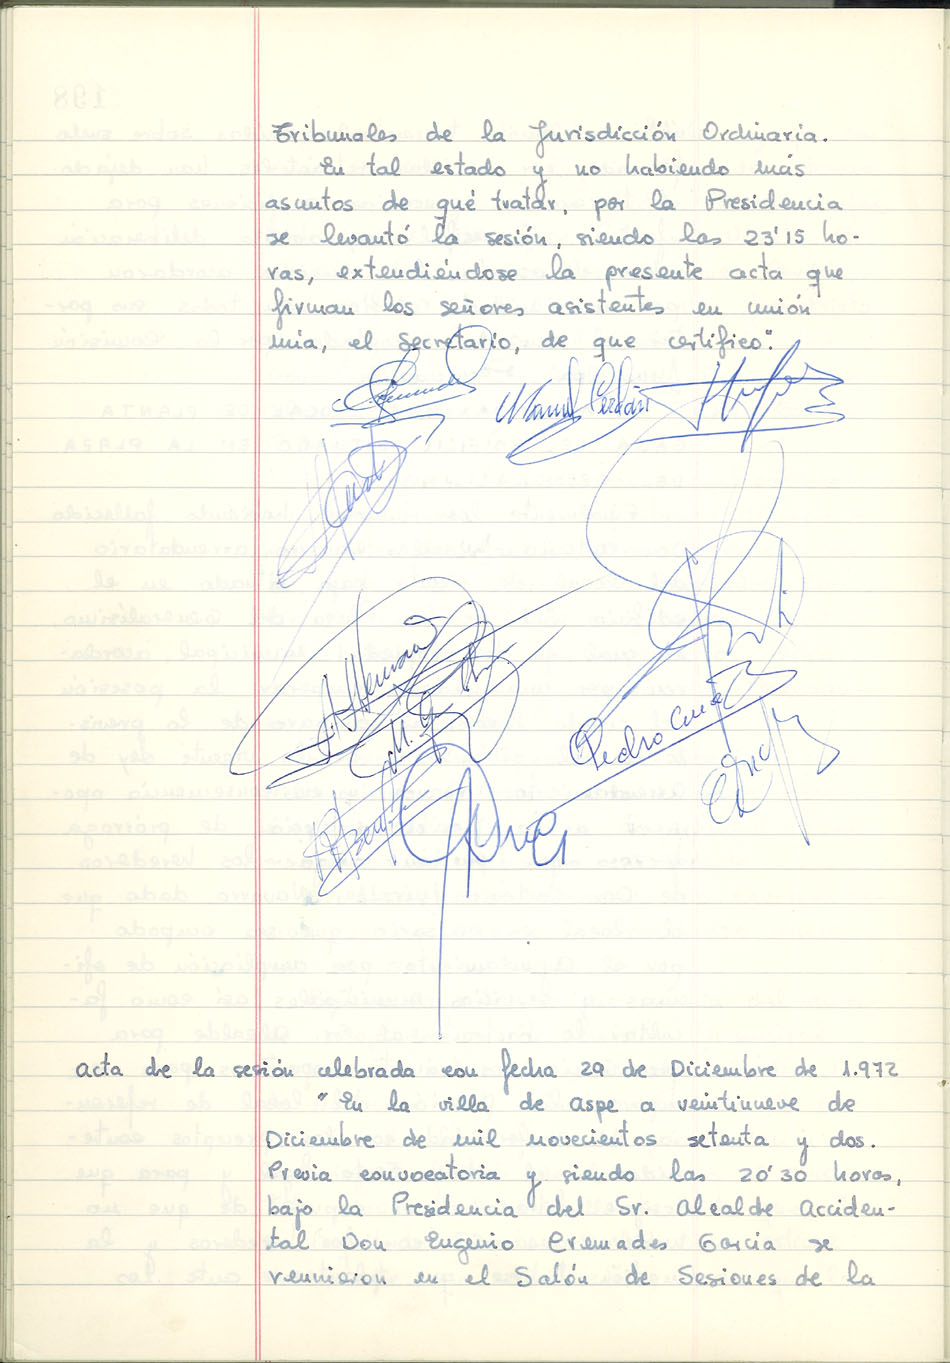 Tribunales de la Jurisdicción Ordinaria.
En tal estado y no habiendo más
asuntos de qué tratar, por la Presidencia
se levantó la sesión, siendo las 23'15 ho-
ras, extendiéndose la presente acta que
firman los señores asistentes en unión
mía, el Secretario, de que certifico".
Manuel
Pedro
Acta de la sesión celebrada con fecha 29 de Diciembre de 1.972
"En la villa de Aspe a veintinueve de
Diciembre de mil novecientos setenta y dos.
Previa convocatoria y siendo las 20'30 horas,
bajo la Presidencia del Sr. Alcalde Acciden-
tal Don Eugenio Cremades García se
reunieron en el Salón de Sesiones de la